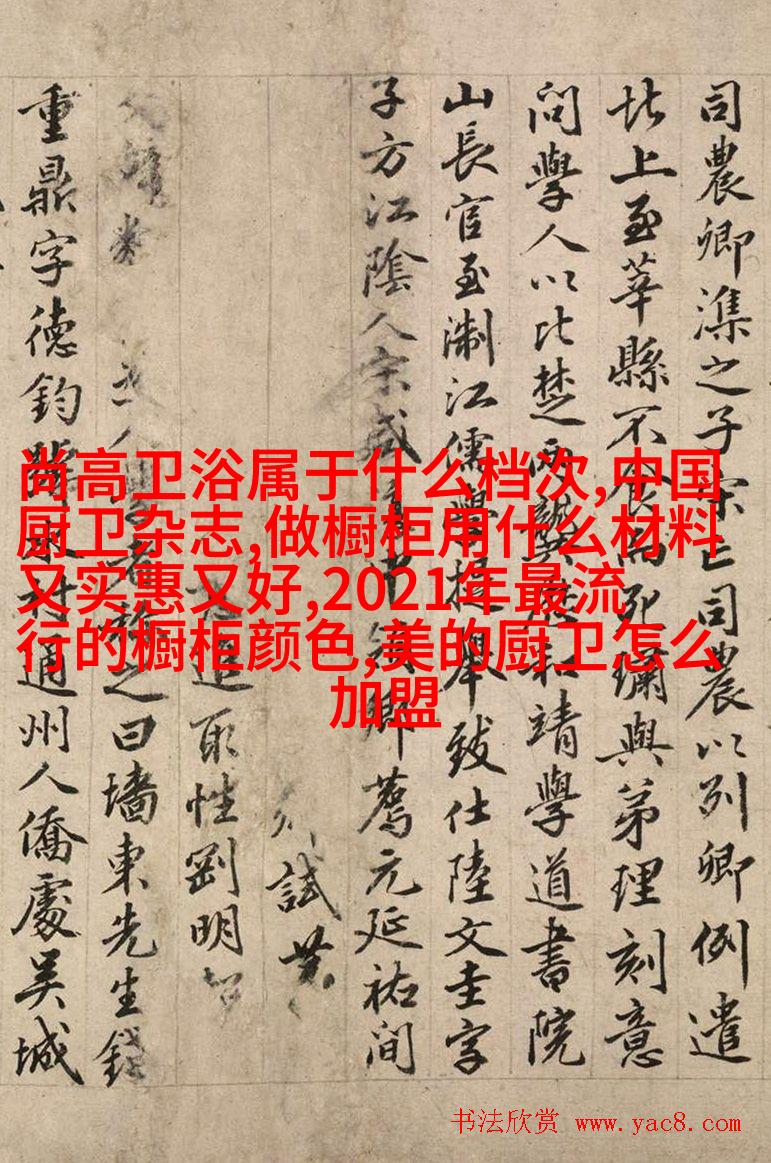 司農卿潗之子宋亡司農以列卿例遣
北上至莘縣不食而死與弟理刻意
問學人以比楚兩龔和靖學道書院
山長官至淛江儒學提舉致仕陸文圭字
子方江陰人宋咸鄉薦元延祐間
試
取性劉明
之曰墻東先生錢
重鼎字德鈞通州人僑處吳城
尚高卫浴属于什么档次,中国
厨卫杂志,做橱柜用什么材料
又实惠又好,2021年最流
行的橱柜颜色,美的厨卫怎么
加盟
书法欣赏 www.yac8.com